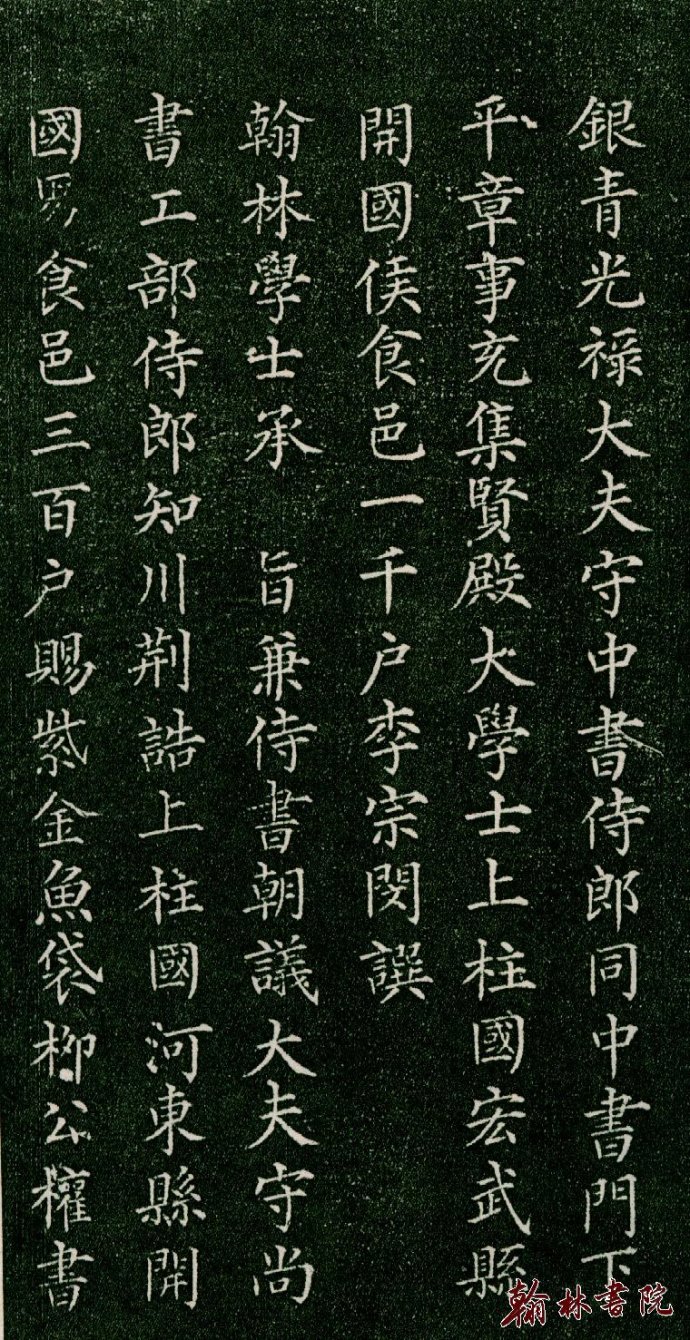 銀青光禄大夫守中書侍郎同中書門下
平章事充集賢殿大學士上柱國宏武縣
開國侯食邑一千户李宗閔譔
翰林學士承 旨兼侍書朝議大夫守尚
書工部侍郎知川荆誥上柱國河東縣開
國男食邑三百户賜紫金魚袋柳公權書
翰林書院